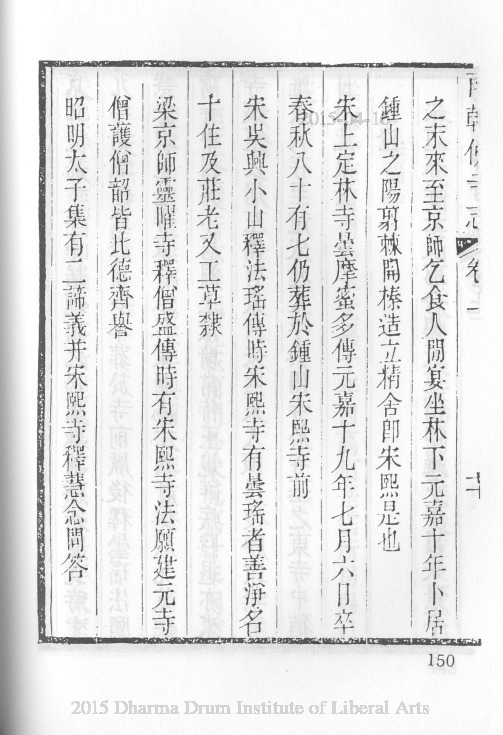 南朝佛寺志 卷上 十
之末來至京師乞食人閒宴坐林下元嘉十年卜居
鍾山之陽剪棘開榛造立精舍卽宋熙是也
宋上定林寺曇摩蜜多傳元嘉十九年七月六日卒
春秋八十有七仍葬於鍾山宋熙寺前
宋吳興小山釋法瑤傳時宋熙寺有曇瑤者善淨名
十住及莊老又工草隸
梁京師靈曜寺釋僧盛傳時有宋熙寺法願建元寺
僧護僧韶皆比德齊譽
昭明太子集有二諦義并宋熙寺釋慧念問答
150
2015-04-1
2015 Dharma Drum Institute of Liberal Arts